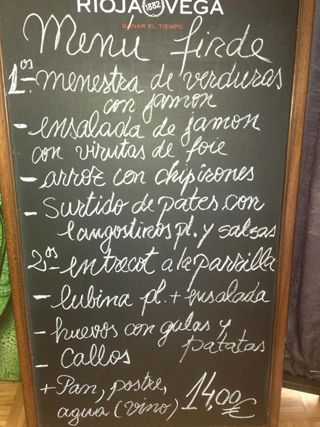 RIOJA VEGA
1882
GANAR EL TIEMPO
Menu finde
1os-menestra de verduras
con jamon
- ensalada de jamon
con virutas de foie
- arroz con chipirones
- Surtido de pates con
langostinos pl. y salsas
2os-entrecot a la parrilla
- lubina pl. + ensalada
- huevos con gulas y
patatas
- callos
+ Pan, postre,
agua (vino) 14,00€